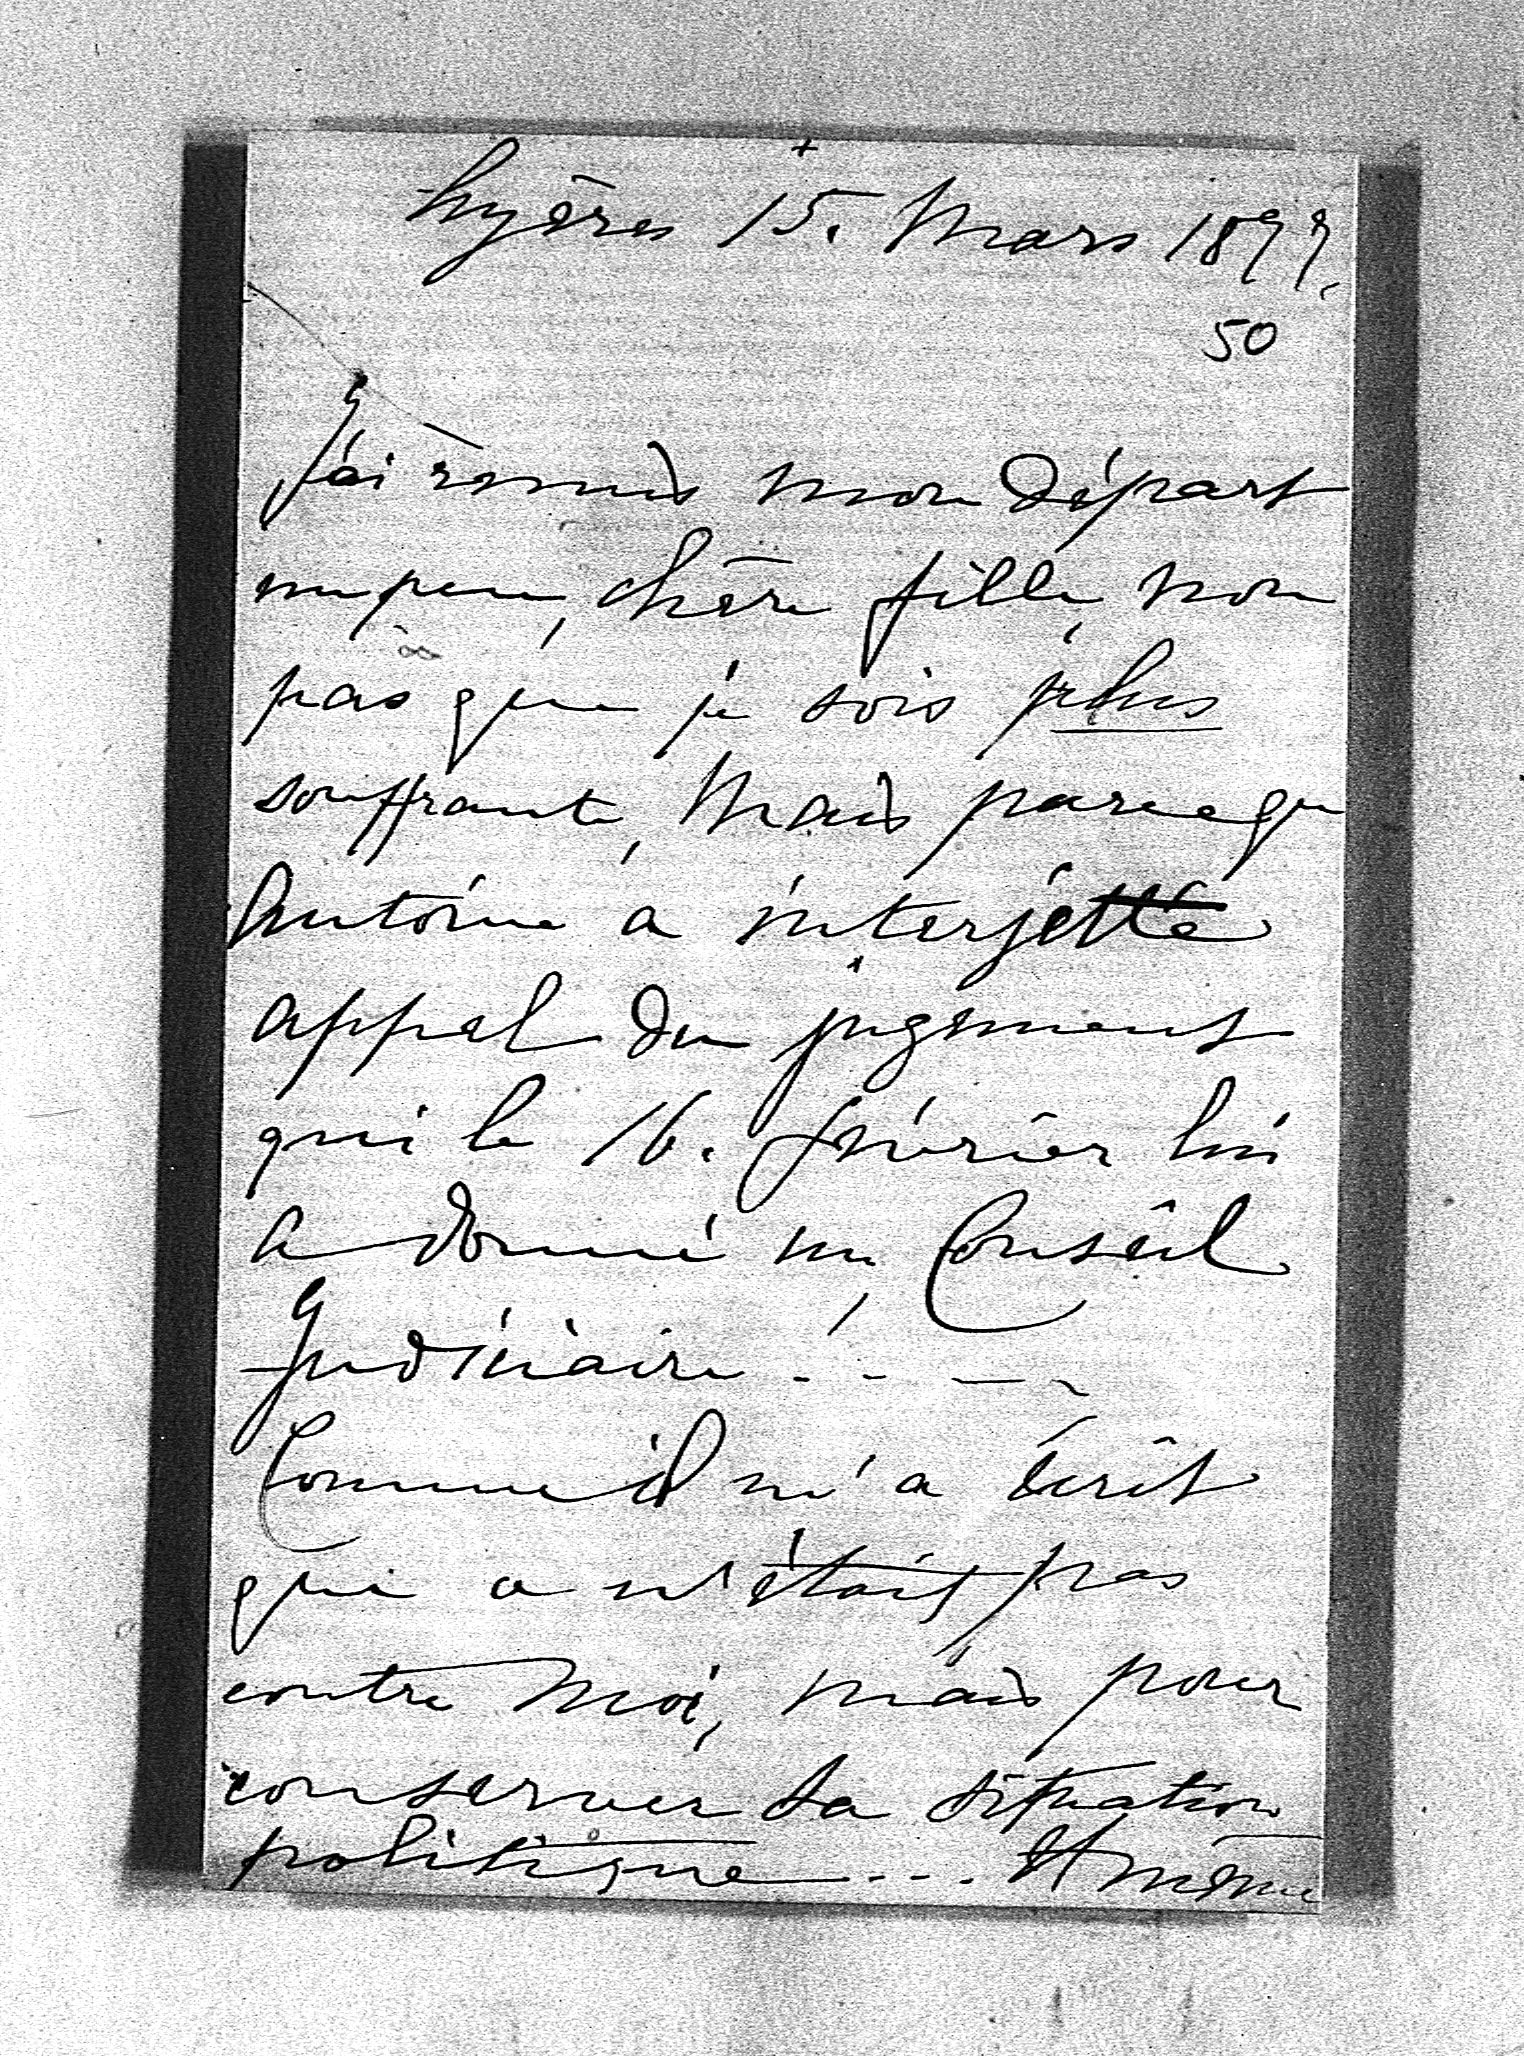 +
hyères 15. Mars 1899.
50
J'ai remis mon départ
un peu, chère fille, non
pas que je sois plus
souffrante, Mais parceque
Antoine a interjetté
appel du jugement
qui le 16. février lui
a donné un Conseil
Judiciaire . . — ~
Comme il m'a écrit
que ce n'étais pas
contre Moi, mais pour
conserver sa situation
politique . . . Et même